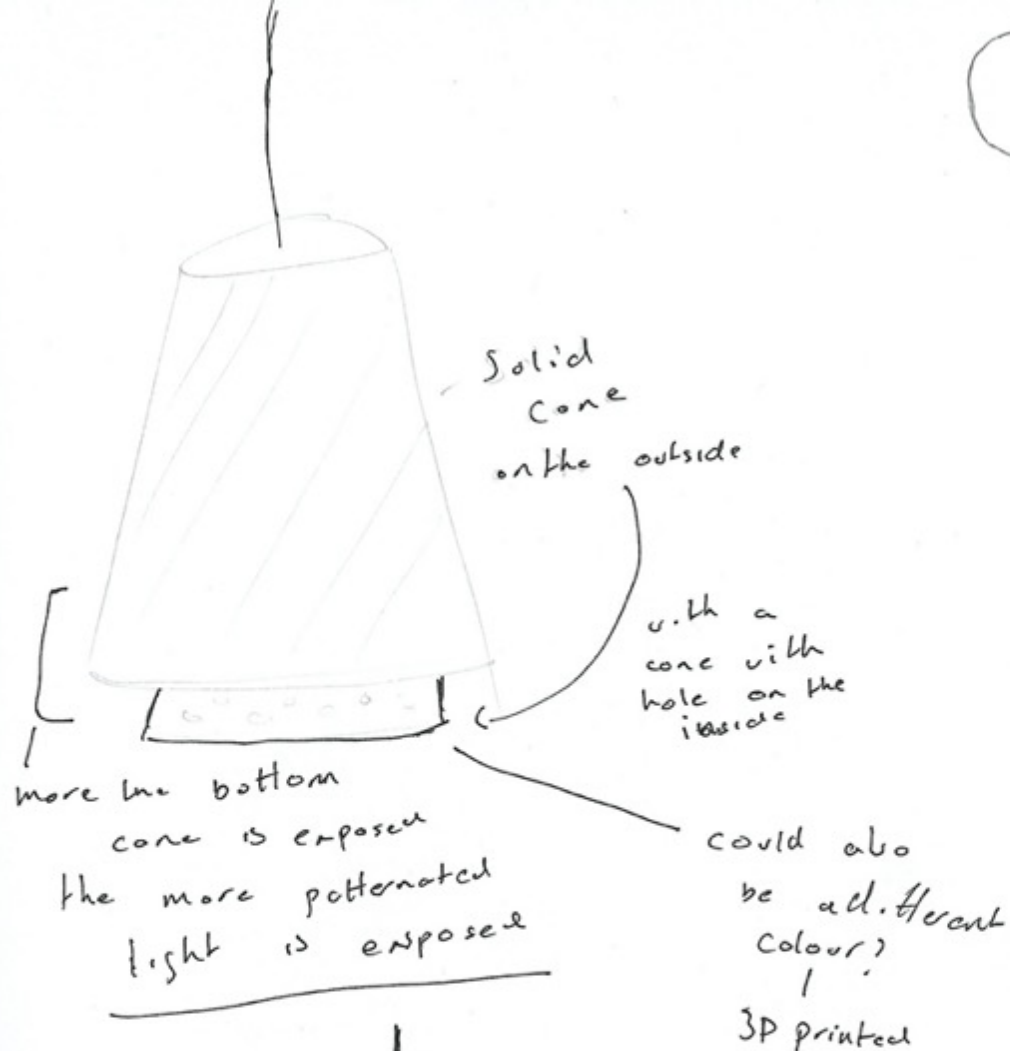 Solid
Cone
on the outside
with a
cone with
hole on the
inside
more the bottom
cone is exposed
the more patternated
light is exposed
could also
be a different
colour?
3D printed